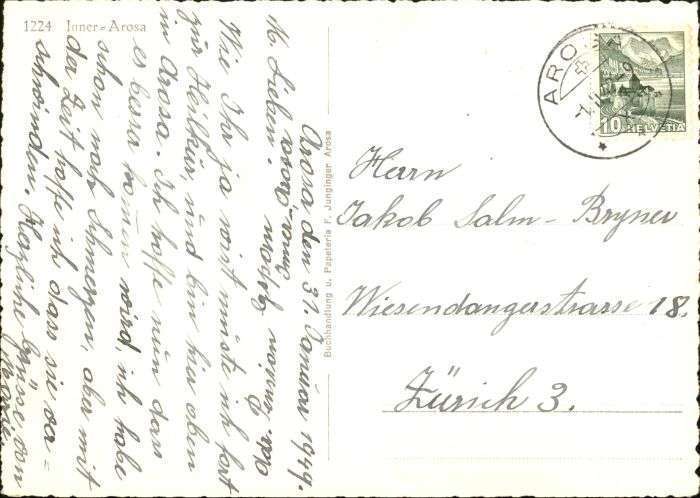 1224 Inner-Arosa
Arosa, den 31. Januar 1949.
M. Lieben.
Wie Ihr ja wisst müsste ich fort
zur Heilkur, und bin hier oben
in Arosa. Ich hoffe nun dass
es besser komen wird, ich habe
schon noch Schmerzen, aber mit
der Zeit hoffe ich dass sie ver=
schwinden. Herzliche Grüsse von
Buchhandlung u. Papeterie F. Junginger Arosa
AROSA
10
HELVETIA
Herrn
Jakob Salm-Bryner
Wiesendangerstrasse 18.
Zürich 3.